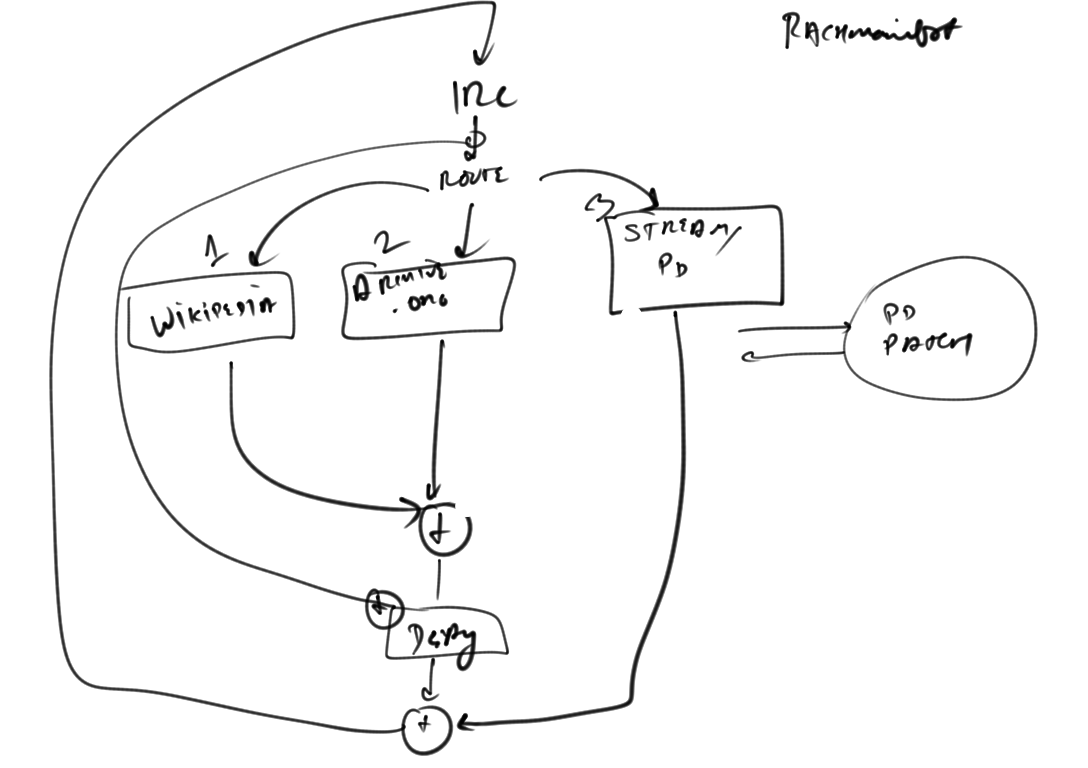 RACHmaninbot
IRC
ROUTE
1
2
3
WIKIPEDIA
ARCHIVE
.ORG
STREAM/
PD
PD
PATCH
+
+
+